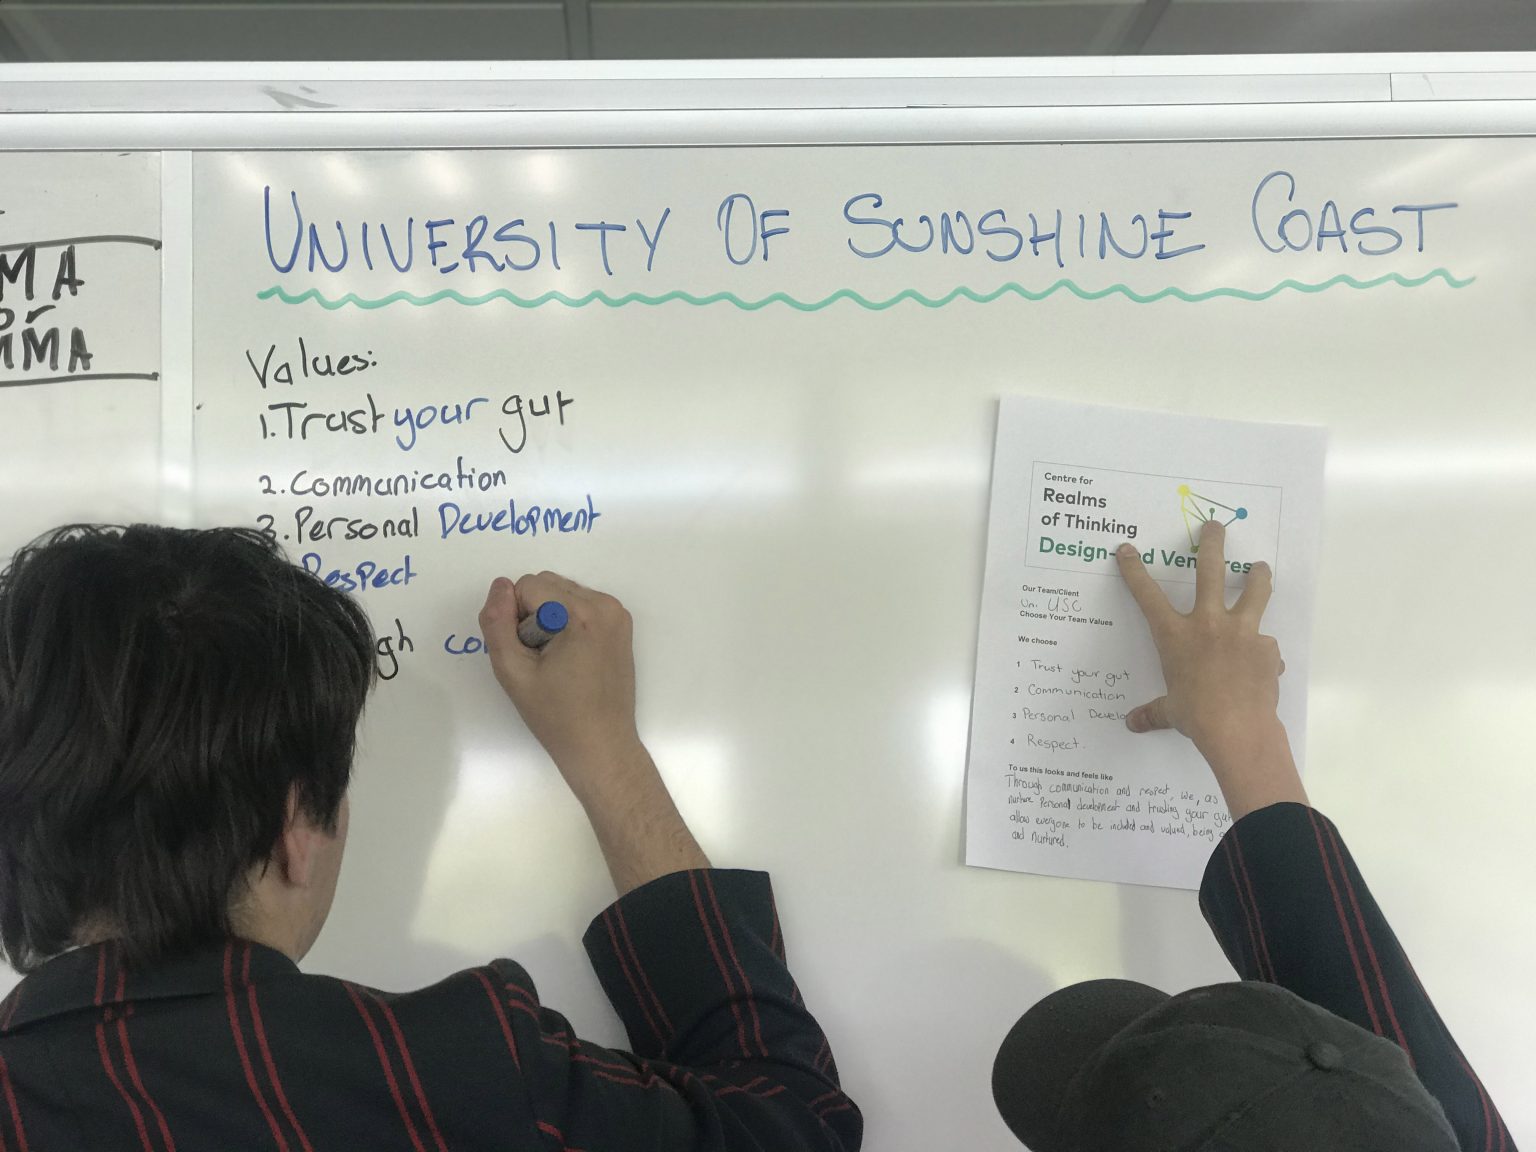 UNIVERSITY OF SUNSHINE COAST
MMA
Values:
1. Trust your gut
2. Communication
3. Personal Development
Respect
Centre for
Realms
of Thinking
Our Team/Client
Uni USC
Choose Your Team Values
We choose
1 Trust your gut
2 Communication
3 Personal
4 Respect.
To us this looks and feels like
Through communication and respect, we, as
nurture personal development and trusting your gut
allow everyone to be included and valued, being
and nurtured.